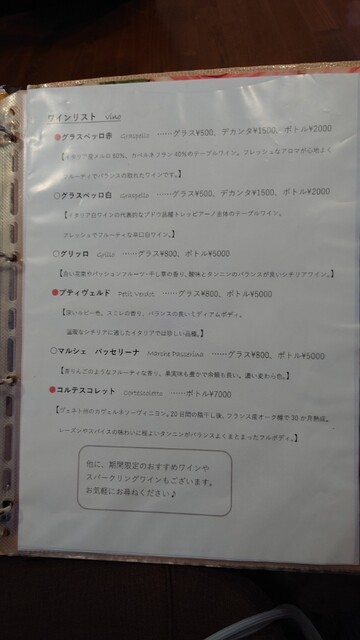 ワインリスト vino
●グラスペッロ赤 Graspello ……グラス¥500、デカンタ¥1500、ボトル¥2000
【イタリア産メルロ60%、カベルネフラン40%のテーブルワイン。フレッシュなアロマが心地よく
フルーティでバランスの取れたワインです。】
○グラスペッロ白 Graspello ……グラス¥500、デカンタ¥1500、ボトル¥2000
【イタリア白ワインの代表的なブドウ品種トレッビアーノ主体のテーブルワイン。
フレッシュでフルーティな辛口白ワイン。】
○グリッロ Grillo ……グラス¥800、ボトル¥5000
【白い花束やパッションフルーツ・干し草の香り。酸味とタンニンのバランスが良いシチリアワイン。】
●プティヴェルド Petit verdot ……グラス¥800、ボトル¥5000
【深いルビー色。スミレの香り。バランスの良いミディアムボディ。
温暖なシチリアに適したイタリアでは珍しい品種。】
○マルシェ パッセリーナ Marche Passerina ……グラス¥800、ボトル¥5000
【青りんごのようなフルーティな香り。果実味も豊かで余韻も長い。濃い麦わら色。】
●コルテスコレット Cortescoletto ……ボトル¥7000
【ヴェネト州のカヴェルネソーヴィニヨン。20日間の陰干し後、フランス産オーク樽で30か月熟成。
レーズンやスパイスの味わいに程よいタンニンがバランスよくまとまったフルボディ。】
他に、期間限定のおすすめワインや
スパークリングワインもございます。
お気軽にお尋ねください♪